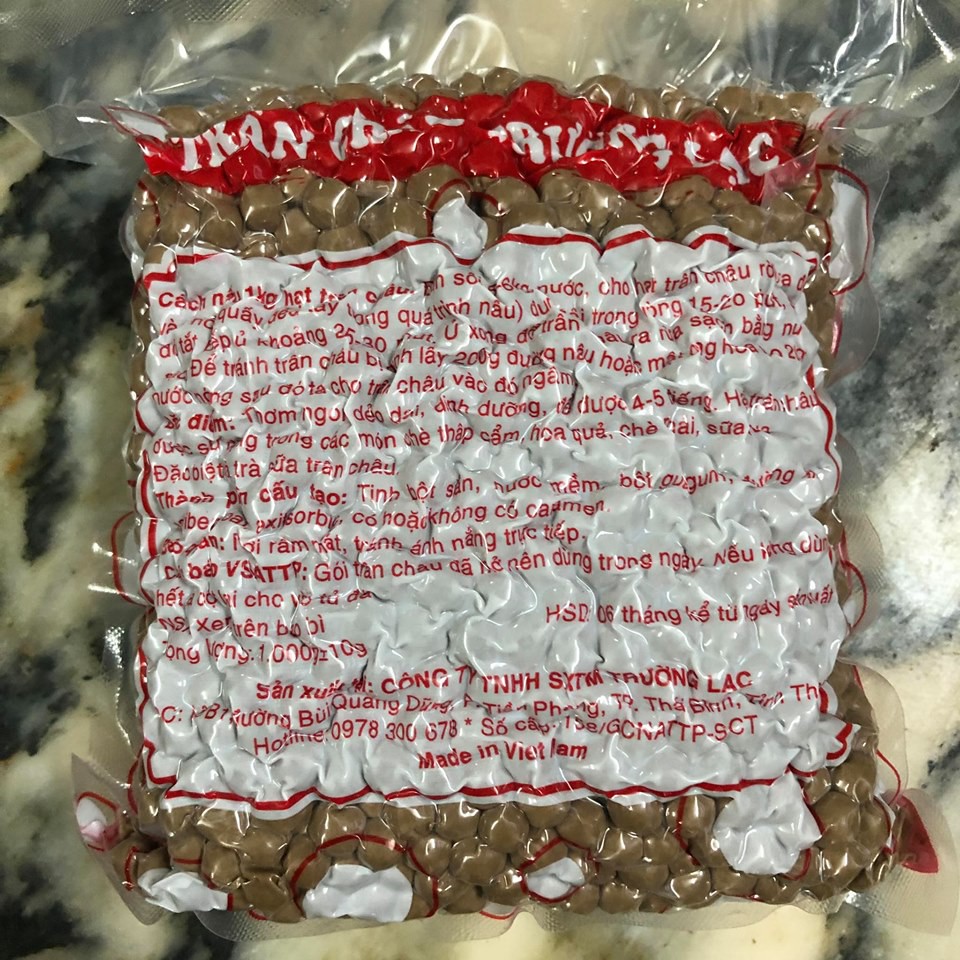 TRÂN CHÂU TRƯỜNG LẠC
Cách nấu 1kg hạt trân châu: nước, cho hạt trân châu
quấy đều tay trong quá trình nấu) đun sôi trong vòng 15-20 phút,
tắt bếp ủ khoảng 25-30 phút. Ủ xong rửa sạch bằng
Để tránh trân châu bị dính lấy 200g đường nâu hoặc mật ong
nước nóng sau đó ta cho trân châu vào đó ngâm
điểm: Thơm ngon, dẻo dai, dinh dưỡng, được 4-5 tiếng. Hạt trân châu
được sử dụng trong các món chè thập cẩm, hoa quả, chè Thái, sữa
Đặc biệt là trà sữa trân châu.
Thành phần cấu tạo: Tinh bột sắn, nước mềm, bột gugum, đường
có hoặc không có caramen.
Bảo quản: Nơi râm mát, tránh ánh nắng trực tiếp.
bảo VSATTP: Gói trân châu đã nên dùng trong ngày. Nếu không dùng
hết cho vô tủ đá
NSX: Xem trên bao bì HSD: 06 tháng kể từ ngày sản xuất
Trọng lượng: 1.000g±10g
Sản xuất tại: CÔNG TY TNHH SXTM TRƯỜNG LẠC
Đ/C: Đường Bùi Quang Dũng, P. Tiền Phong, TP. Thái Bình, Tỉnh. Th
Hotline: 0978 300 678 * Số cấp: GCNATTP-SCT
Made in Viet Nam